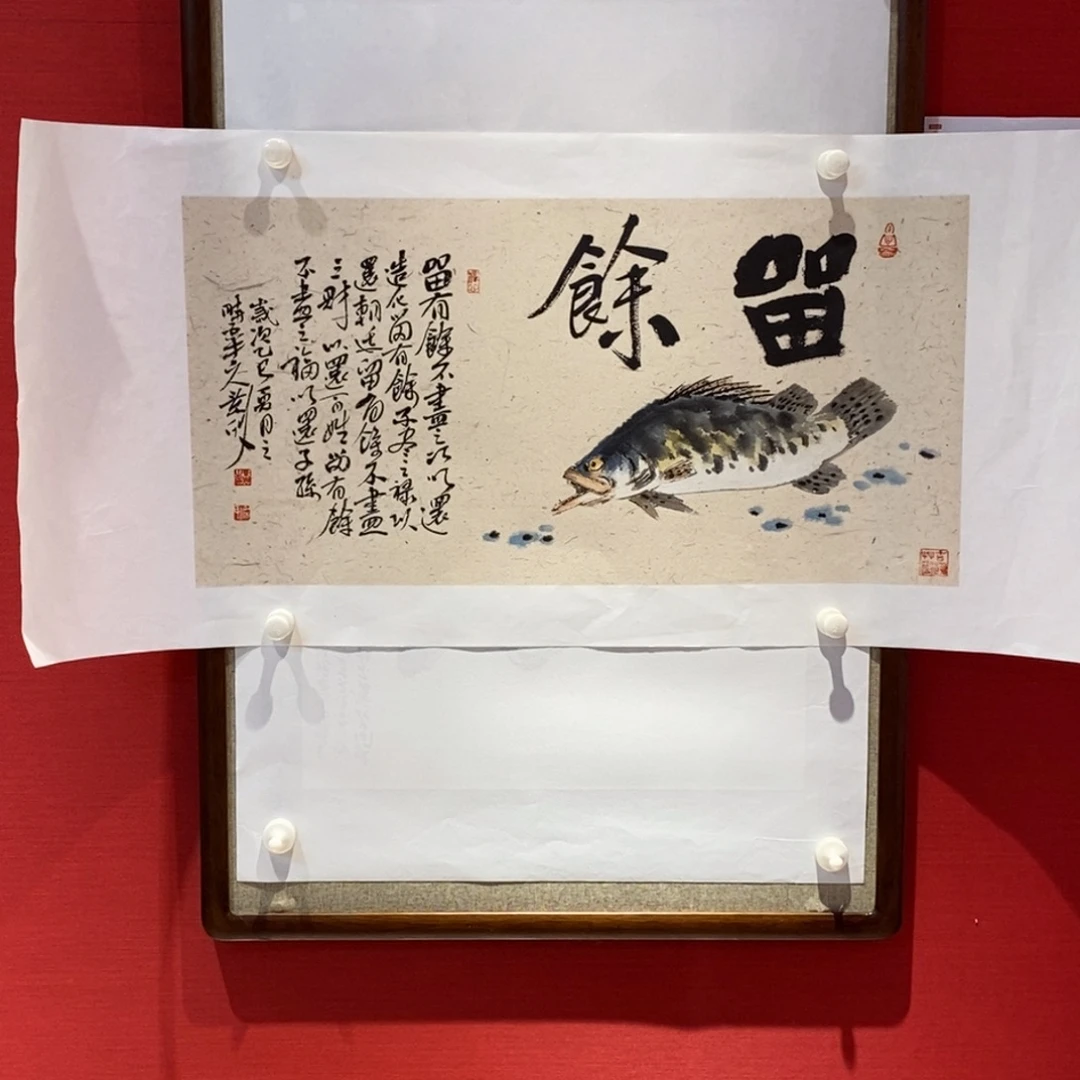 留餘
留有餘不盡之巧以還
造化留有餘不盡之祿以
還朝廷留有餘不盡
之財以還百姓留有餘
不盡之福以還子孫
歲次乙巳夏月之
時